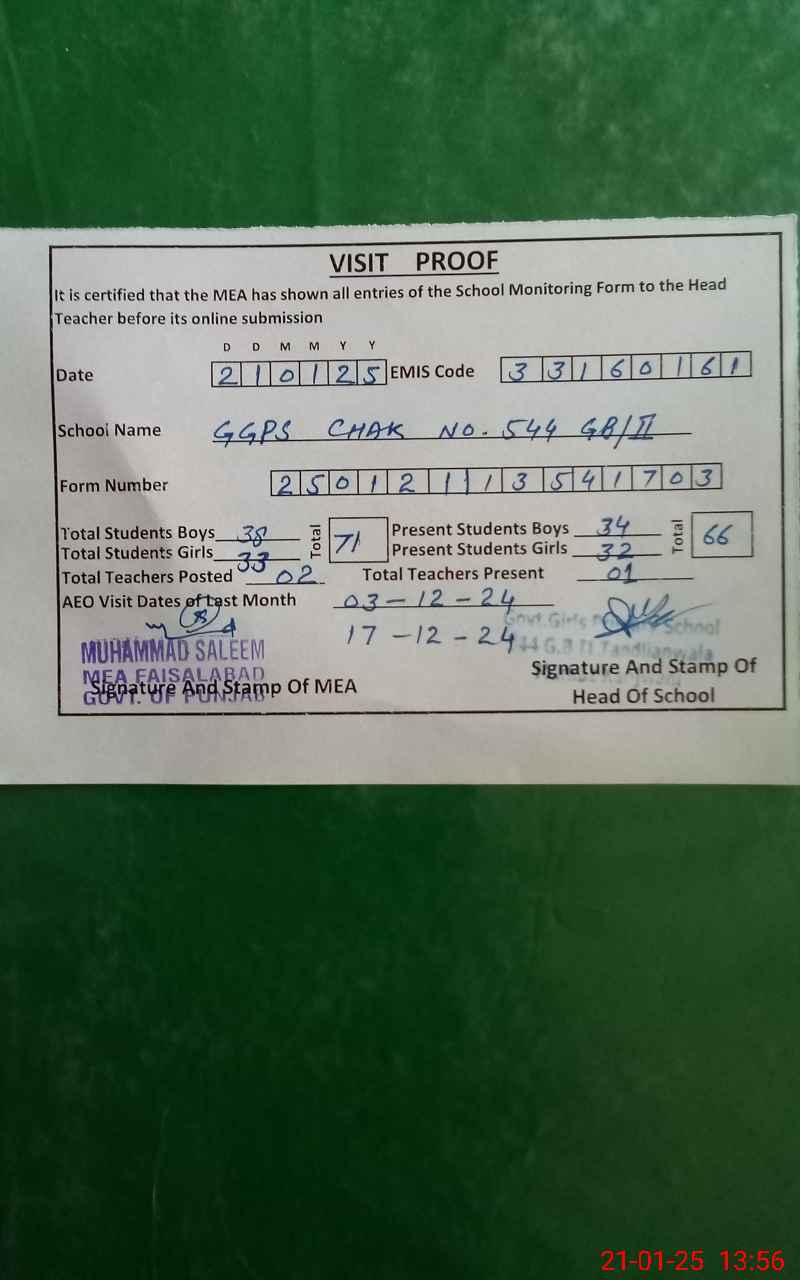 VISIT PROOF
It is certified that the MEA has shown all entries of the School Monitoring Form to the Head
Teacher before its online submission
D D M M Y Y
Date 210125 EMIS Code 33160161
School Name GGPS CHAK NO. 544 GB/II
Form Number 250121113541703
Total Students Boys 38 Total 71 Present Students Boys 34 Total 66
Total Students Girls 33 Present Students Girls 32
Total Teachers Posted 02 Total Teachers Present 01
AEO Visit Dates of Last Month 03-12-24
17-12-24
Govt Girls School
G.B II Tandlianwala
MUHAMMAD SALEEM
MEA FAISALABAD
GOVT. OF PUNJAB
Signature And Stamp Of MEA
Signature And Stamp Of
Head Of School
21-01-25 13:56